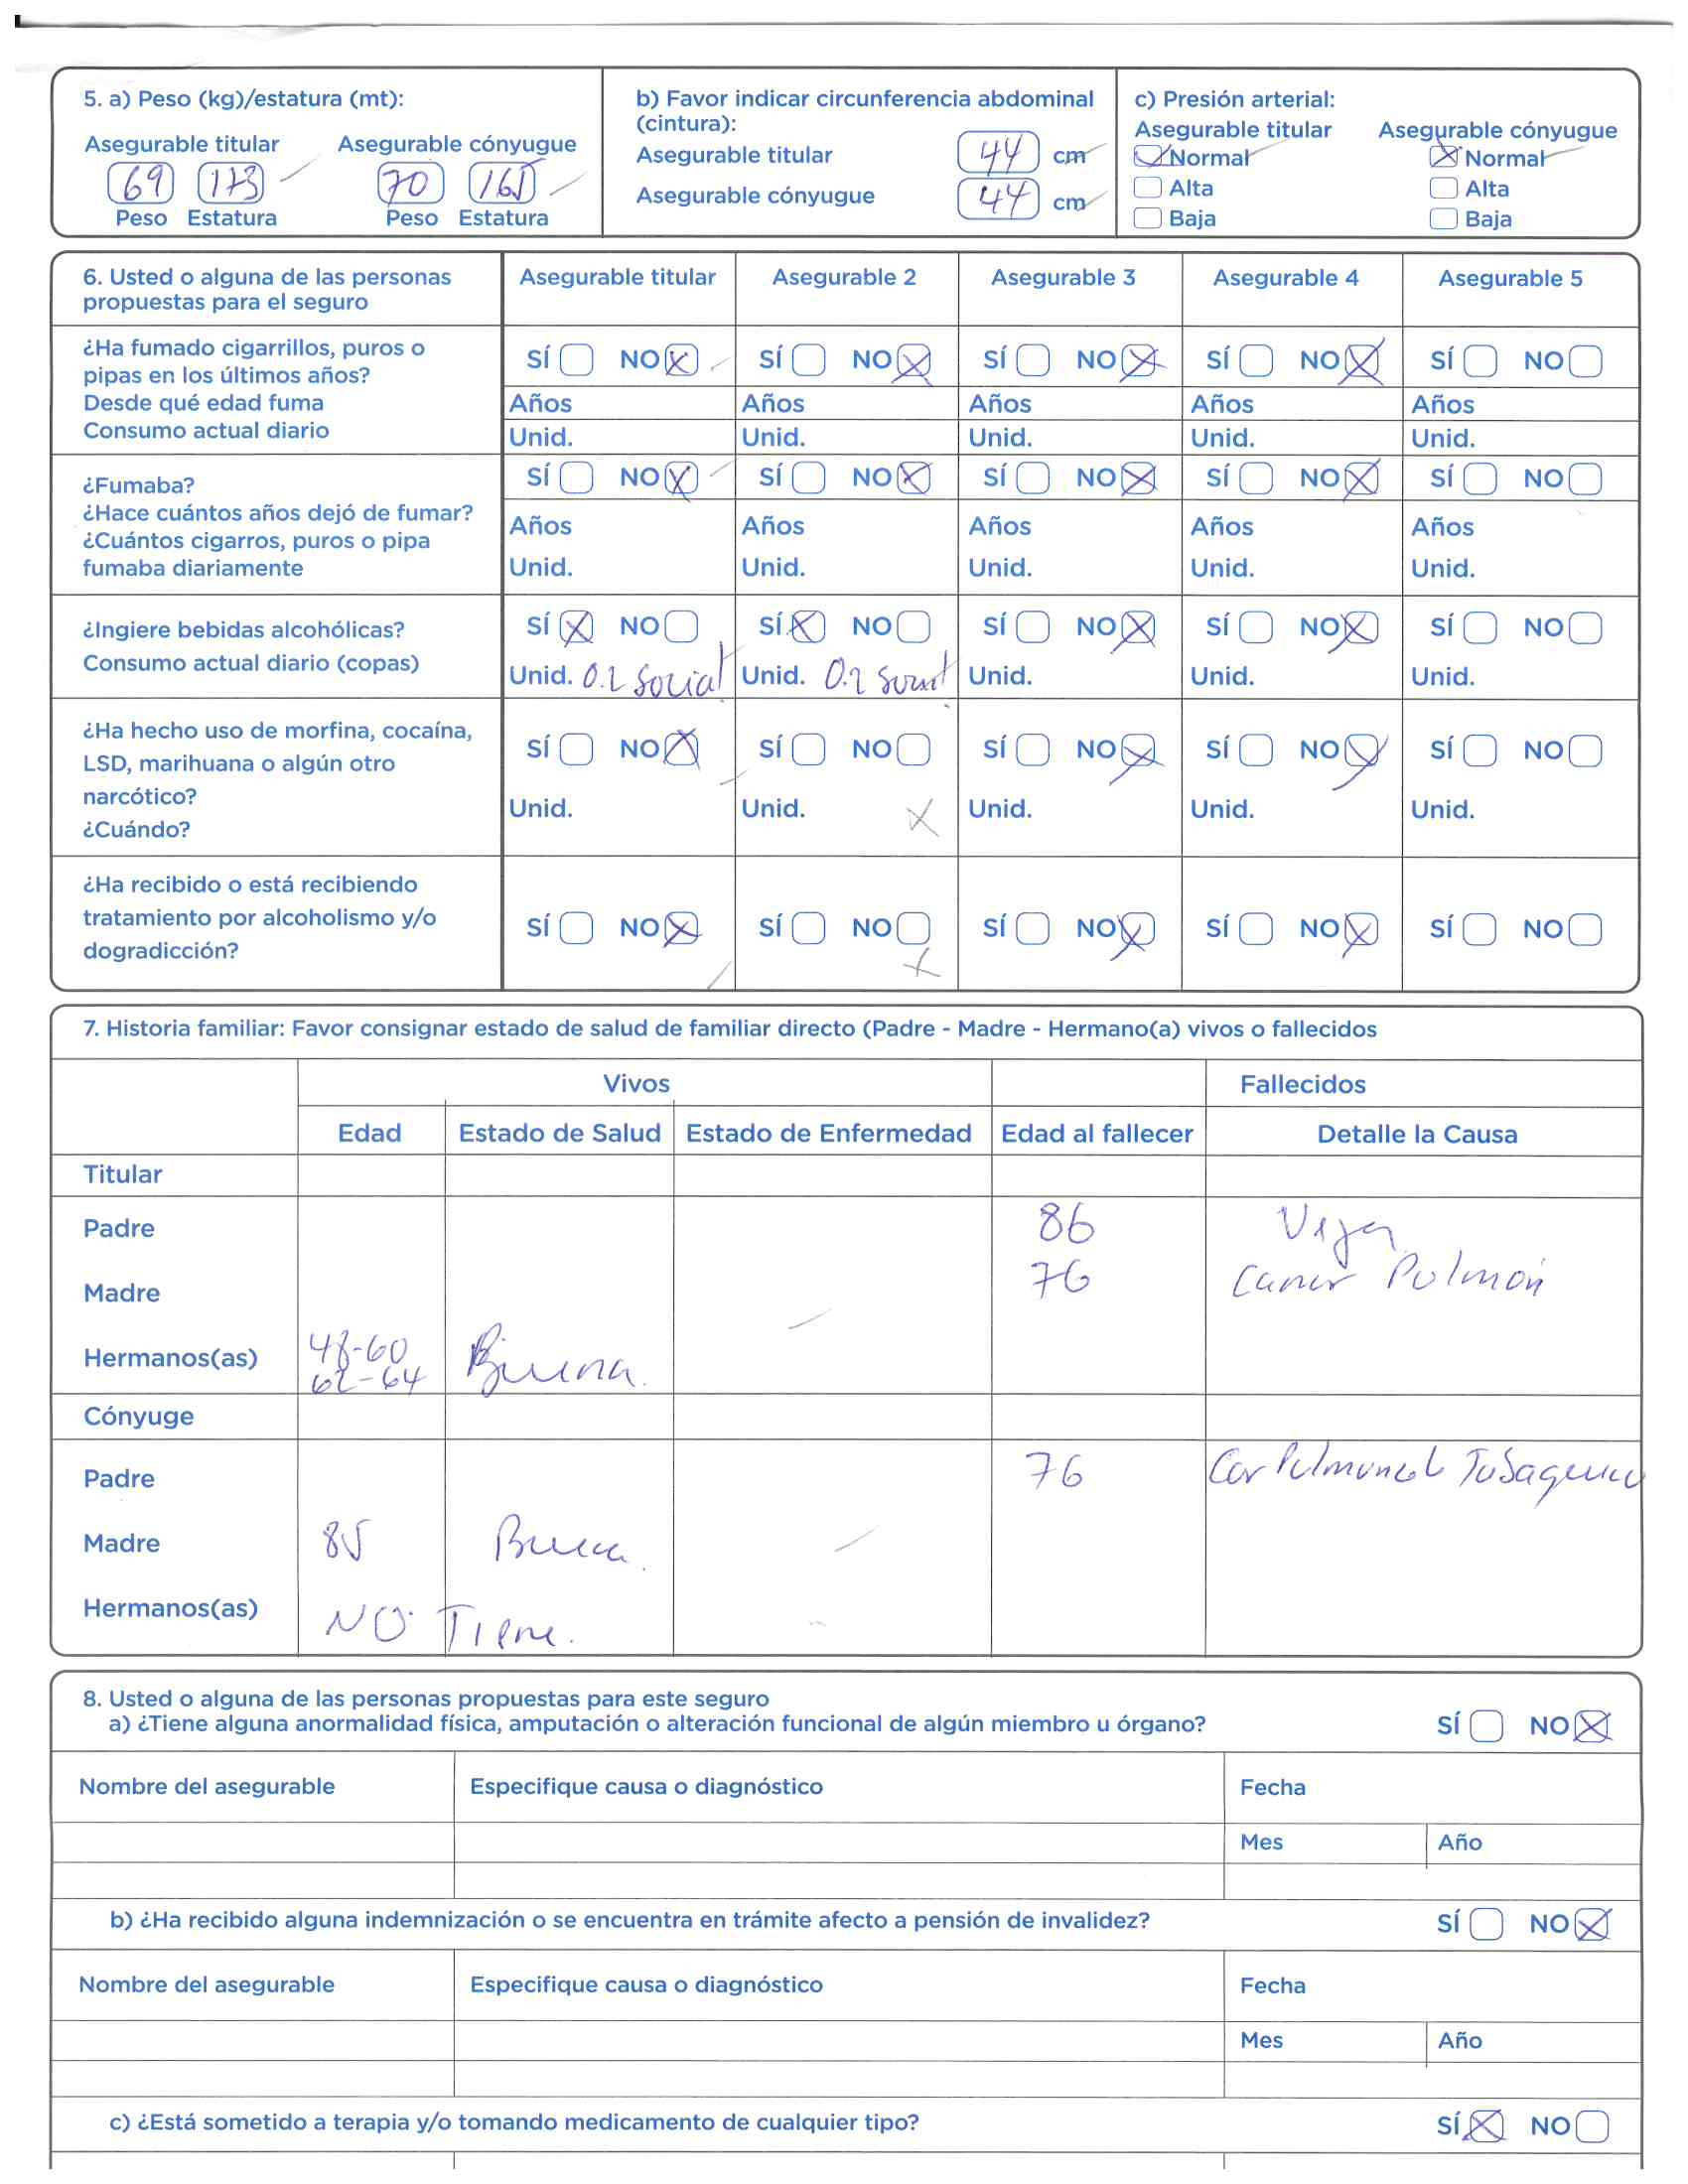 5. a) Peso (kg)/estatura (mt):
Asegurable titular Asegurable cónyugue
69 173 70 165
Peso Estatura Peso Estatura
b) Favor indicar circunferencia abdominal
(cintura):
Asegurable titular 44 cm
Asegurable cónyugue 44 cm
c) Presión arterial:
Asegurable titular Asegurable cónyugue
Normal Normal
Alta Alta
Baja Baja
6. Usted o alguna de las personas
propuestas para el seguro
Asegurable titular Asegurable 2 Asegurable 3 Asegurable 4 Asegurable 5
¿Ha fumado cigarrillos, puros o
pipas en los últimos años?
Desde qué edad fuma
Consumo actual diario
SÍ NO SÍ NO SÍ NO SÍ NO SÍ NO
Años Años Años Años Años
Unid. Unid. Unid. Unid. Unid.
¿Fumaba?
¿Hace cuántos años dejó de fumar?
¿Cuántos cigarros, puros o pipa
fumaba diariamente
SÍ NO SÍ NO SÍ NO SÍ NO SÍ NO
Años Años Años Años Años
Unid. Unid. Unid. Unid. Unid.
¿Ingiere bebidas alcohólicas?
Consumo actual diario (copas)
SÍ NO SÍ NO SÍ NO SÍ NO SÍ NO
Unid. social Unid. Unid. Unid. Unid.
¿Ha hecho uso de morfina, cocaína,
LSD, marihuana o algún otro
narcótico?
¿Cuándo?
SÍ NO SÍ NO SÍ NO SÍ NO SÍ NO
Unid. Unid. Unid. Unid. Unid.
¿Ha recibido o está recibiendo
tratamiento por alcoholismo y/o
dogradicción?
SÍ NO SÍ NO SÍ NO SÍ NO SÍ NO
7. Historia familiar: Favor consignar estado de salud de familiar directo (Padre - Madre - Hermano(a) vivos o fallecidos
Vivos Fallecidos
Edad Estado de Salud Estado de Enfermedad Edad al fallecer Detalle la Causa
Titular
Padre 86
Madre 76 Cancer Pulmón
Hermanos(as) 48-60
62-64 Buena.
Cónyuge
Padre 76
Madre 85 Buena.
Hermanos(as) NO Tiene.
8. Usted o alguna de las personas propuestas para este seguro
a) ¿Tiene alguna anormalidad física, amputación o alteración funcional de algún miembro u órgano? SÍ NO
Nombre del asegurable Especifique causa o diagnóstico Fecha
Mes Año
b) ¿Ha recibido alguna indemnización o se encuentra en trámite afecto a pensión de invalidez? SÍ NO
Nombre del asegurable Especifique causa o diagnóstico Fecha
Mes Año
c) ¿Está sometido a terapia y/o tomando medicamento de cualquier tipo? SÍ NO